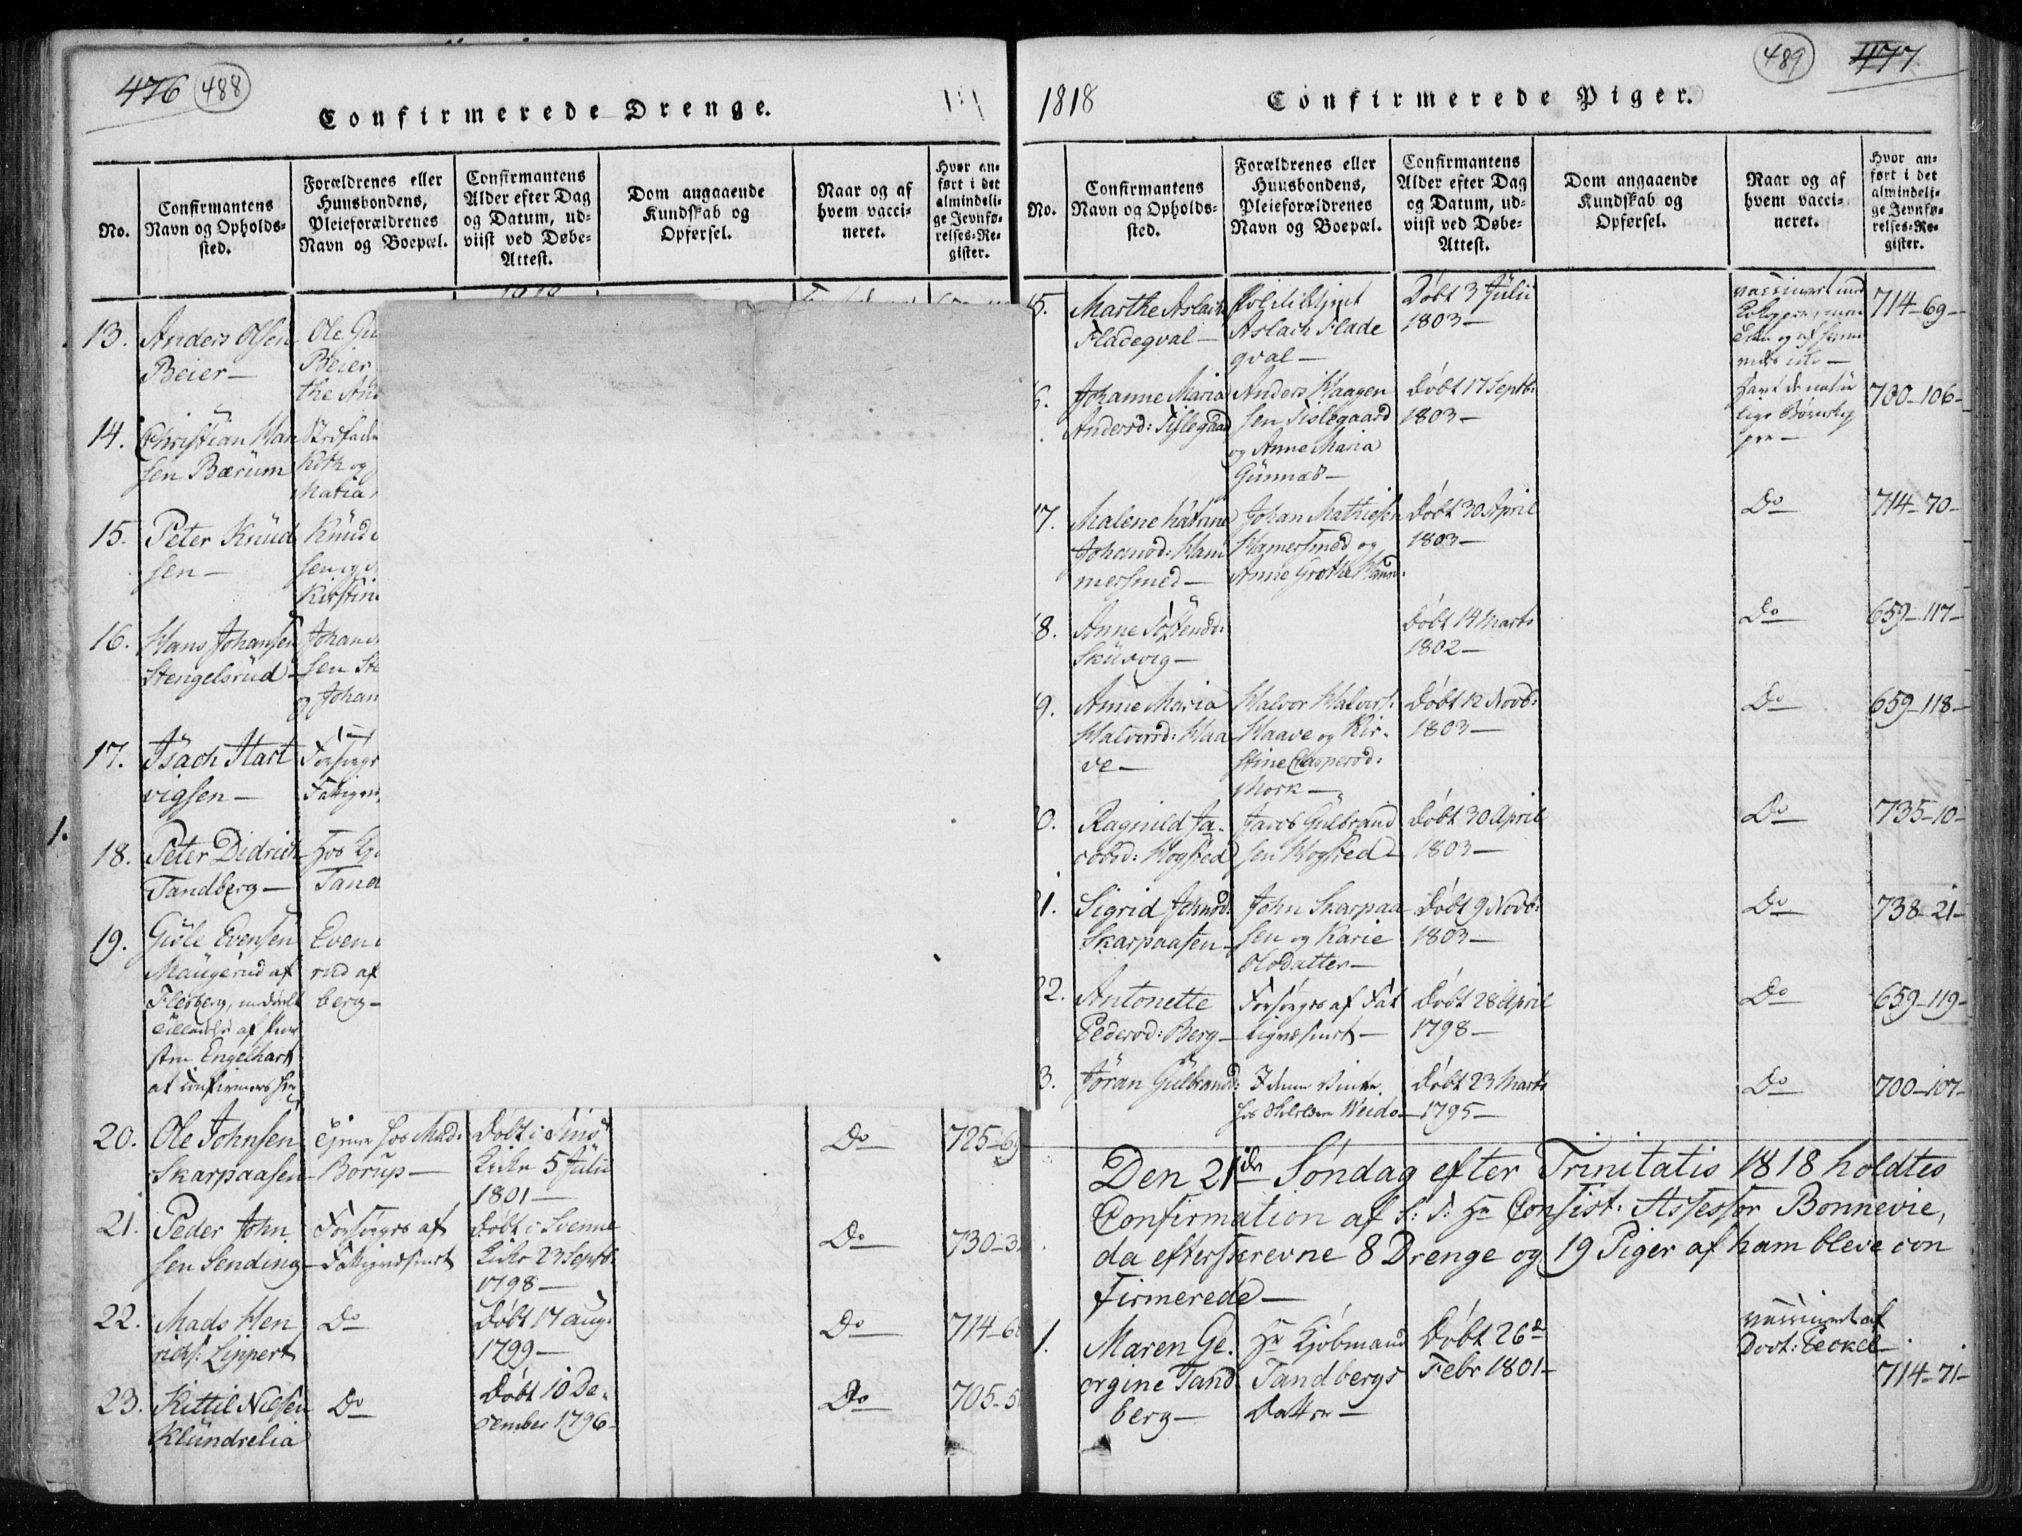 476 488
Confirmerede Drenge.
No.
Confirmantens
Navn og Opholds-
sted.
Forældrenes eller
Huusbondens,
Pleieforældrenes
Navn og Boepæl.
Confirmantens
Alder efter Dag
og Datum, ud-
viist ved Døbe-
Attest.
Dom angaaende
Kundskab og
Opførsel.
Naar og af
hvem vacci-
neret.
Hvor an-
ført i det
almindeli-
ge Jevnfø-
relses-Re-
gister.
13. Anders Olsen
Beier
Ole Gu
Beier
the And
14. Christian Han
sen Bærum
Koth og
Maria
15. Peter Knud
sen
Knud
sen og
Kirstine
16. Hans Johansen
Stengelsrud
Johan
sen Ste
og Johan
17. Isach Hart
vigsen
Forsørgs
Fattigvæs
18. Peter Didrich
Tandberg
Hos
Tand
19. Giøle Evensen
Maugerud af
Flesberg, meddeelt
Tilladelse af Præ
sten Engelhart
at confirmeres her
Even
rud af
berg
20. Ole Johnsen
Skarpaasen
tjener hos Mad:
Borup
Døbt i
Kirke 5 Julii
1801
Do
725-69
21. Peder John
sen Sending
Forsørges af
Fattigvæsenet
Døbt i Svenne
Kirke 23 Septb.
1798
Do
730-3
22. Mads Hen
richs: Lippert
Do
Døbt 17 Aug:
1799
Do
714-6
23. Kittil Nilsen
Klundrelia
Do
Døbt 10 De-
cember 1796
Do
705-5
1818
Confirmerede Piger.
489 477
No.
Confirmantens
Navn og Opholds-
sted.
Forældrenes eller
Huusbondens,
Pleieforældrenes
Navn og Boepæl.
Confirmantens
Alder efter Dag
og Datum, ud-
viist ved Døbe-
Attest.
Dom angaaende
Kundskab og
Opførsel.
Naar og af
hvem vacci-
neret.
Hvor an-
ført i det
almindeli-
ge Jevnfø-
relses-Re-
gister.
5. Marthe Aslachs
Fladeqval
Aslach Flade
qval
Døbt 3 Julii
1803
714-69
6. Johanne Maria
Andersd: Tislegaard
Anders Haagen
sen Tislegaard
og Anne Maria
Gunnæs
Døbt 17 Septb:
1803
Havt de natur
lige Børnekop
per
700-106
17. Malene Katrine
Johansd: Ham
mersmed
Johan Mathiesen
Hamersmed og
Anne Grethe Hansd.
Døbt 30 April
1803
Do
714-70
8. Anne Tostensd:
Skusvig
Døbt 14 Marts
1802
Do
659-117
9. Anne Maria
Halvorsd: Haa
ve
Halvor Halvors:
Haave og Kir-
stine Caspersd:
Mork
Døbt 12 Novb:
1803
Do
659-118
0. Ragnild Ja-
cobsd: Hogsted
Jacob Gulbrand
sen Hogsted
Døbt 30 April
1803
Do
735-10
21. Sigrid Johnsd:
Skarpaasen
John Skarpaa
sen og Karie
Olsdatter
Døbt 9 Novb:
1803
Do
738-21
22. Antonette
Pedersd: Berg
Forsørges af Fat
tigvæsenet
Døbt 28 April
1798
Do
659-119
3. Jøran Gulbrandsd:
Weids
Døbt 23 Marts
1795
Do
700-107
Den 21de Søndag efter Trinitatis 1818 holdtes
Confirmation af S: T: Hr Consist: Assessor Bonnevie,
da efterskrevne 8 Drenge og 19 Piger af ham bleve con
firmerede
1. Maren Ge-
orgine Tand
berg
Hr Kjøbmand
Tandbergs
Datter
Døbt 26de
Febr 1801
vaccineret af
Doct: Peckel
714-71